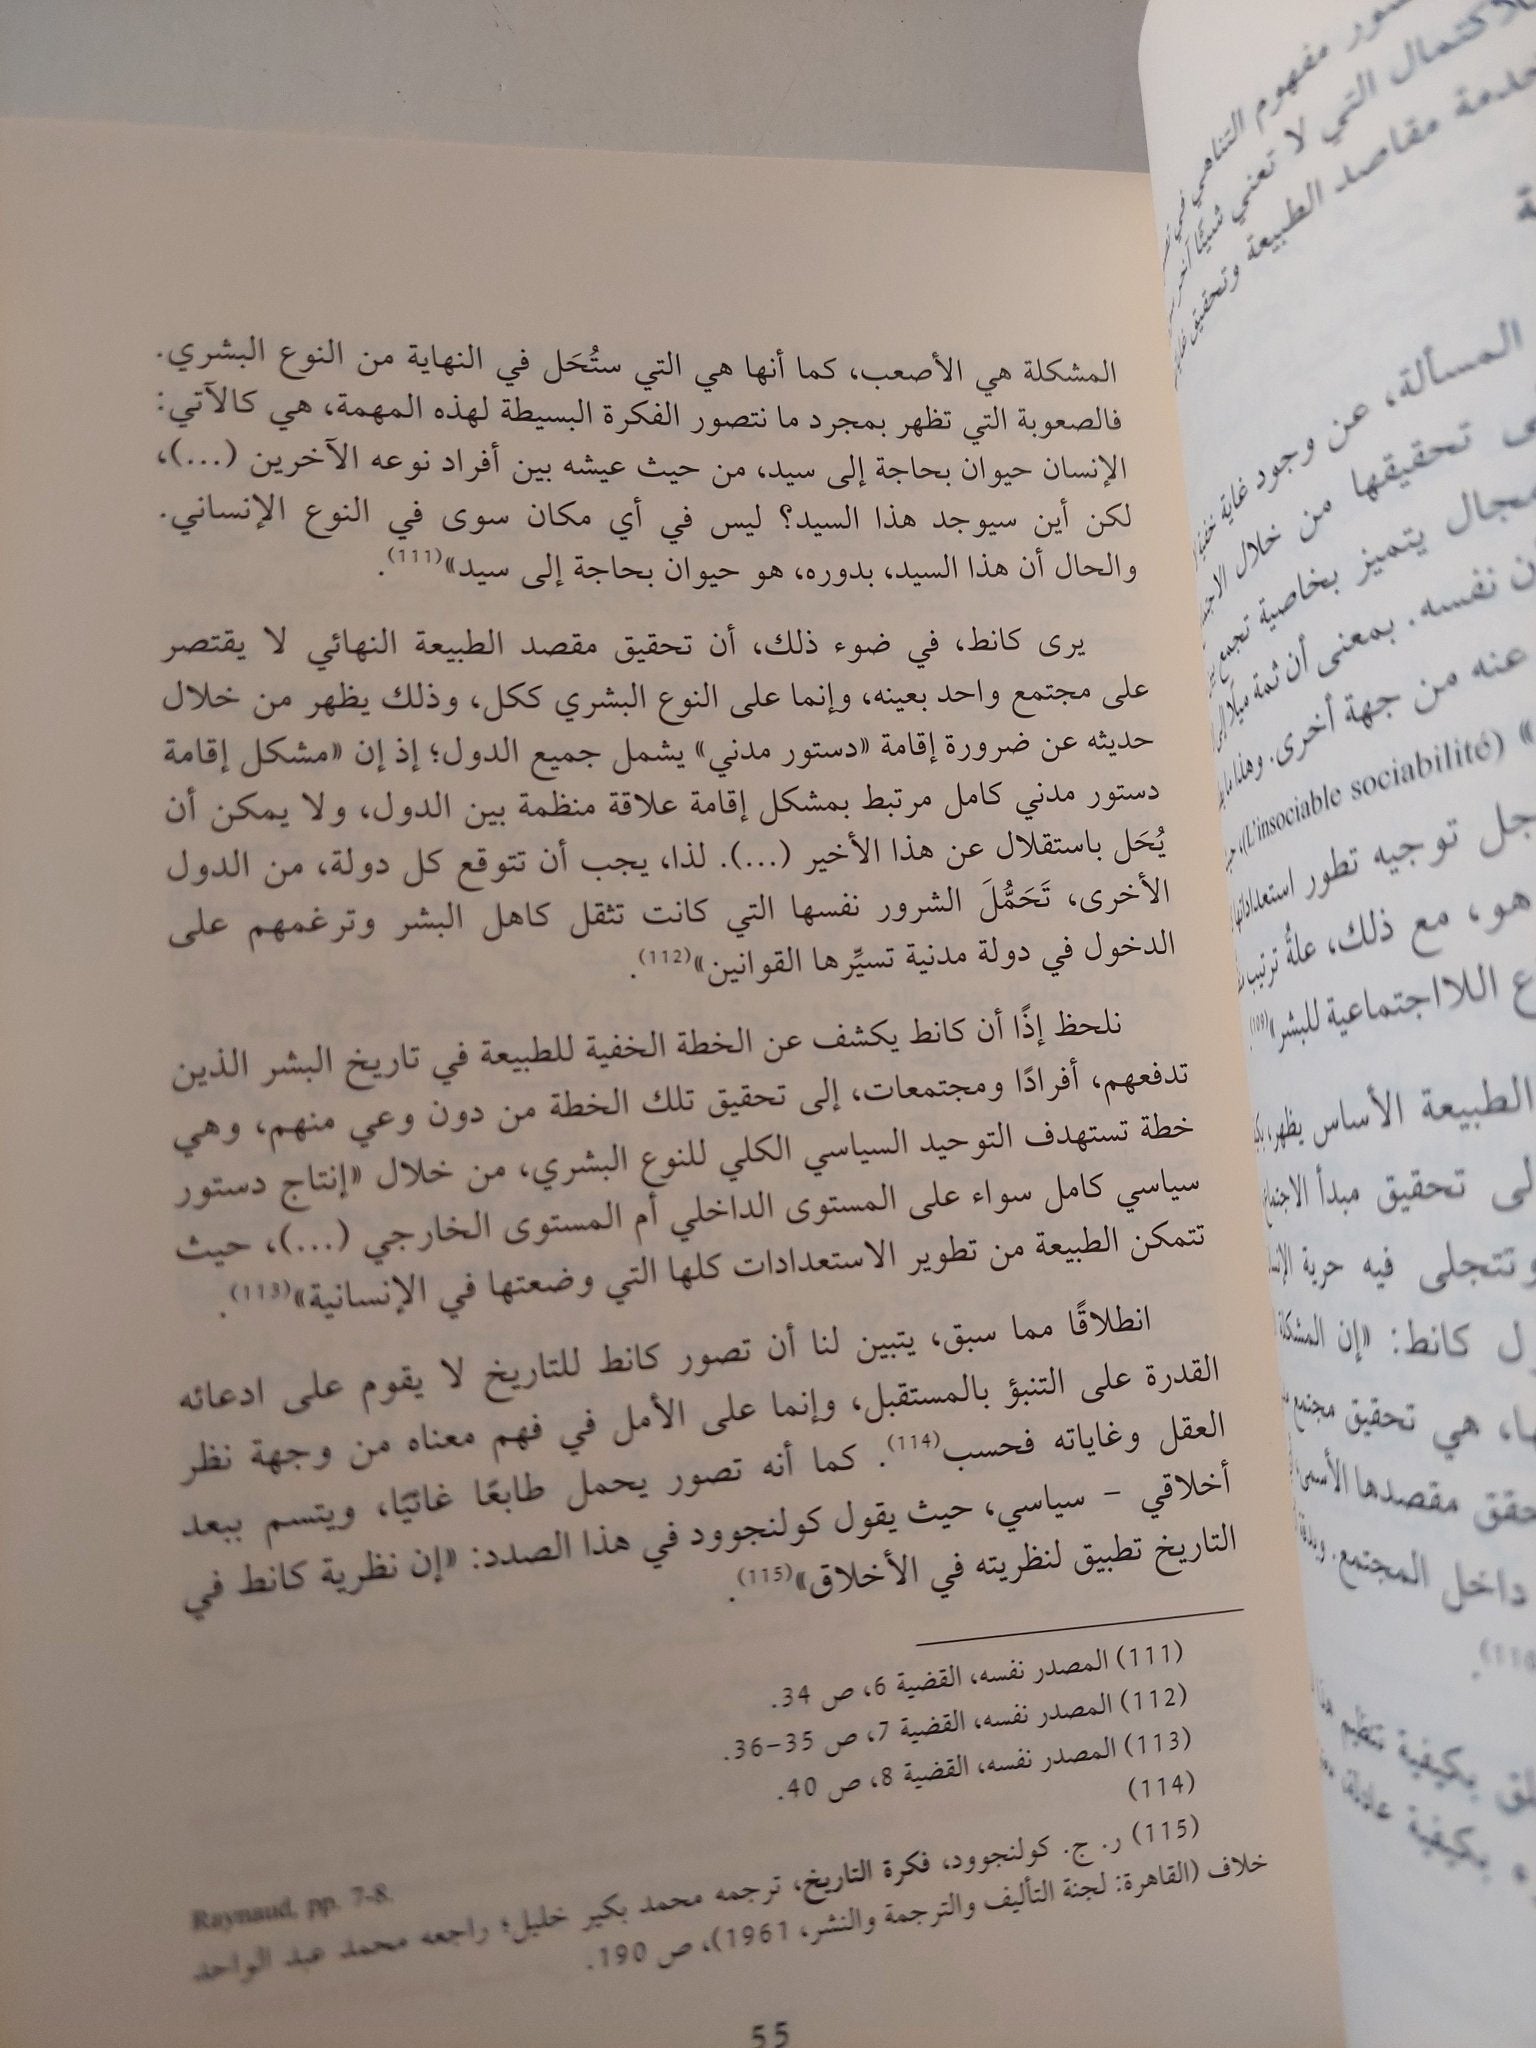 المشكلة هي الأصعب، كما أنها هي التي ستُحَل في النهاية من النوع البشري.
فالصعوبة التي تظهر بمجرد ما نتصور الفكرة البسيطة لهذه المهمة، هي كالآتي:
الإنسان حيوان بحاجة إلى سيد، من حيث عيشه بين أفراد نوعه الآخرين (...)،
لكن أين سيوجد هذا السيد؟ ليس في أي مكان سوى في النوع الإنساني.
والحال أن هذا السيد، بدوره، هو حيوان بحاجة إلى سيد»(111).
يرى كانط، في ضوء ذلك، أن تحقيق مقصد الطبيعة النهائي لا يقتصر
على مجتمع واحد بعينه، وإنما على النوع البشري ككل، وذلك يظهر من خلال
حديثه عن ضرورة إقامة «دستور مدني» يشمل جميع الدول؛ إذ إن «مشكل إقامة
دستور مدني كامل مرتبط بمشكل إقامة علاقة منظمة بين الدول، ولا يمكن أن
يُحَل باستقلال عن هذا الأخير (...). لذا، يجب أن تتوقع كل دولة، من الدول
الأخرى، تَحَمُّلَ الشرور نفسها التي كانت تثقل كاهل البشر وترغمهم على
الدخول في دولة مدنية تسيِّرها القوانين»(112).
نلحظ إذًا أن كانط يكشف عن الخطة الخفية للطبيعة في تاريخ البشر الذين
تدفعهم، أفرادًا ومجتمعات، إلى تحقيق تلك الخطة من دون وعي منهم، وهي
خطة تستهدف التوحيد السياسي الكلي للنوع البشري، من خلال «إنتاج دستور
سياسي كامل سواء على المستوى الداخلي أم المستوى الخارجي (...)، حيث
تتمكن الطبيعة من تطوير الاستعدادات كلها التي وضعتها في الإنسانية»(113).
انطلاقًا مما سبق، يتبين لنا أن تصور كانط للتاريخ لا يقوم على ادعائه
القدرة على التنبؤ بالمستقبل، وإنما على الأمل في فهم معناه من وجهة نظر
العقل وغاياته فحسب(114). كما أنه تصور يحمل طابعًا غائيًا، ويتسم ببعد
أخلاقي – سياسي، حيث يقول كولنجوود في هذا الصدد: «إن نظرية كانط في
التاريخ تطبيق لنظريته في الأخلاق»(115).
(111) المصدر نفسه، القضية 6، ص 34.
(112) المصدر نفسه، القضية 7، ص 35-36.
(113) المصدر نفسه، القضية 8، ص 40.
(114) Raynaud, pp. 7-8.
(115) ر. ج. كولنجوود، فكرة التاريخ، ترجمه محمد بكير خليل؛ راجعه محمد عبد الواحد
خلاف (القاهرة: لجنة التأليف والترجمة والنشر، 1961)، ص 190.
55
مفهوم التناهي في
الاكتمال التي لا تعني شيئًا آخر
مقاصد الطبيعة وتحقيق
المسألة، عن وجود غاية
تحقيقها من خلال
يتميز بخاصية تجمع
نفسه. بمعنى أن ثمة ميلًا
عنه من جهة أخرى. وهذا ما
(L'insociable sociabilité)
توجيه تطور استعداداتها
هو، مع ذلك، علةُ ترتيب
اللااجتماعية للبشر»(109).
الطبيعة الأساس يظهر،
تحقيق مبدأ
وتتجلى فيه حرية
كانط: «إن المشكلة
هي تحقيق مجتمع
مقصدها الأسمى
داخل المجتمع.
بكيفية
بكيفية عادلة